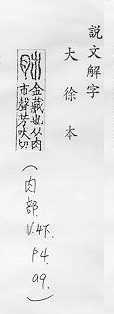 説文解字
大徐本
肺
金藏也从肉
市聲芳吠切
(肉部. V.4下. P4. 99.)